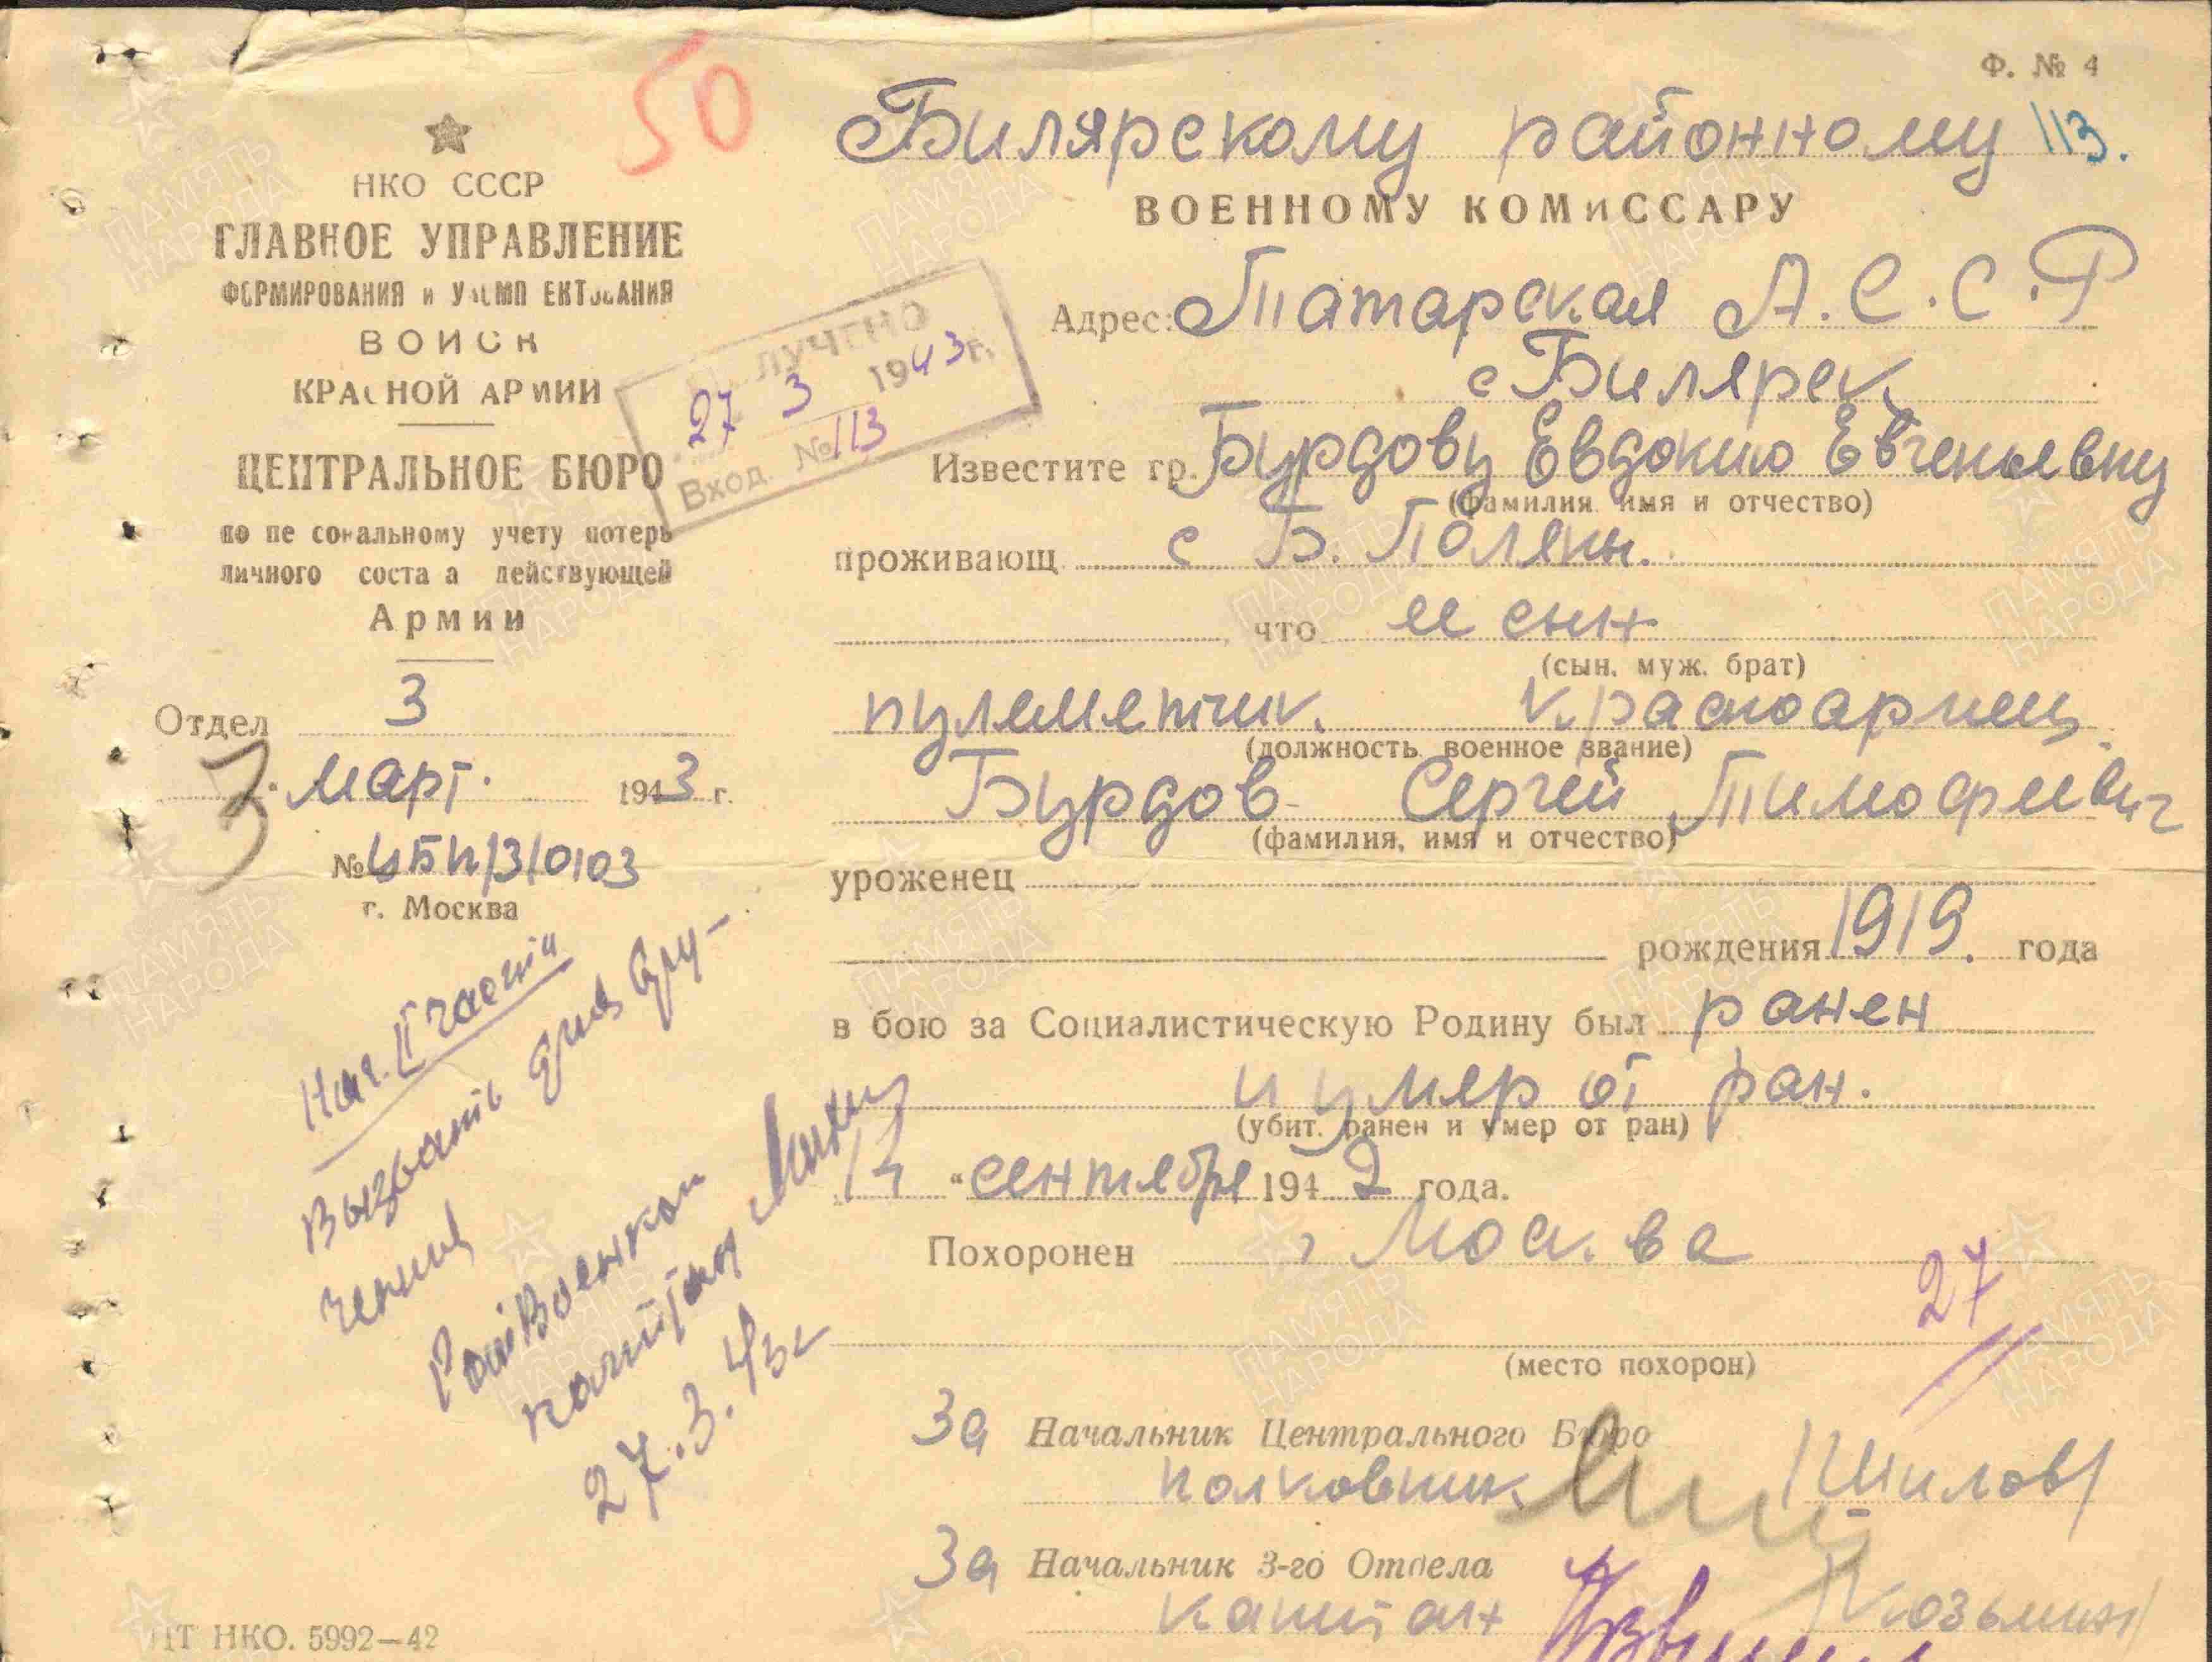 Ф. № 4
50
НКО СССР
ГЛАВНОЕ УПРАВЛЕНИЕ
ФОРМИРОВАНИЯ и УКОМПЛЕКТОВАНИЯ
ВОЙСК
КРАСНОЙ АРМИИ
ЦЕНТРАЛЬНОЕ БЮРО
по персональному учету потерь
личного состава действующей
Армии
Отдел 3
3. март. 1943 г.
№ ЦБП/3/0103
г. Москва
ПОЛУЧЕНО
27 3 1943 г.
Вход. № 113
Нач. II части
Вызвать для вру-
чения
Райвоенком
капитан
27.3.43г
Билярскому районному 113.
ВОЕННОМУ КОМИССАРУ
Адрес: Татарская А.С.С.Р
с Билярск
Известите гр. Бурдову Евдокию Евгеньевну
(фамилия имя и отчество)
проживающ с Б. Поляны.
что ее сын
(сын, муж, брат)
пулеметчик красноармеец
(должность военное звание)
Бурдов Сергей Тимофеевич
(фамилия, имя и отчество)
уроженец
рождения 1919. года
в бою за Социалистическую Родину был ранен
и умер от ран.
(убит, ранен и умер от ран)
14 "сентября 1942 года.
Похоронен г Москва
27
(место похорон)
За Начальник Центрального Бюро
полковник /Шилов/
За Начальник 3-го Отдела
капитан /Козьмин/
ПТ НКО. 5992—42
ПАМЯТЬ НАРОДА